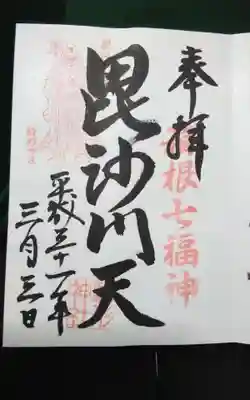 奉拝
箱根七福神
毘沙门天
平成三十一年
三月三日